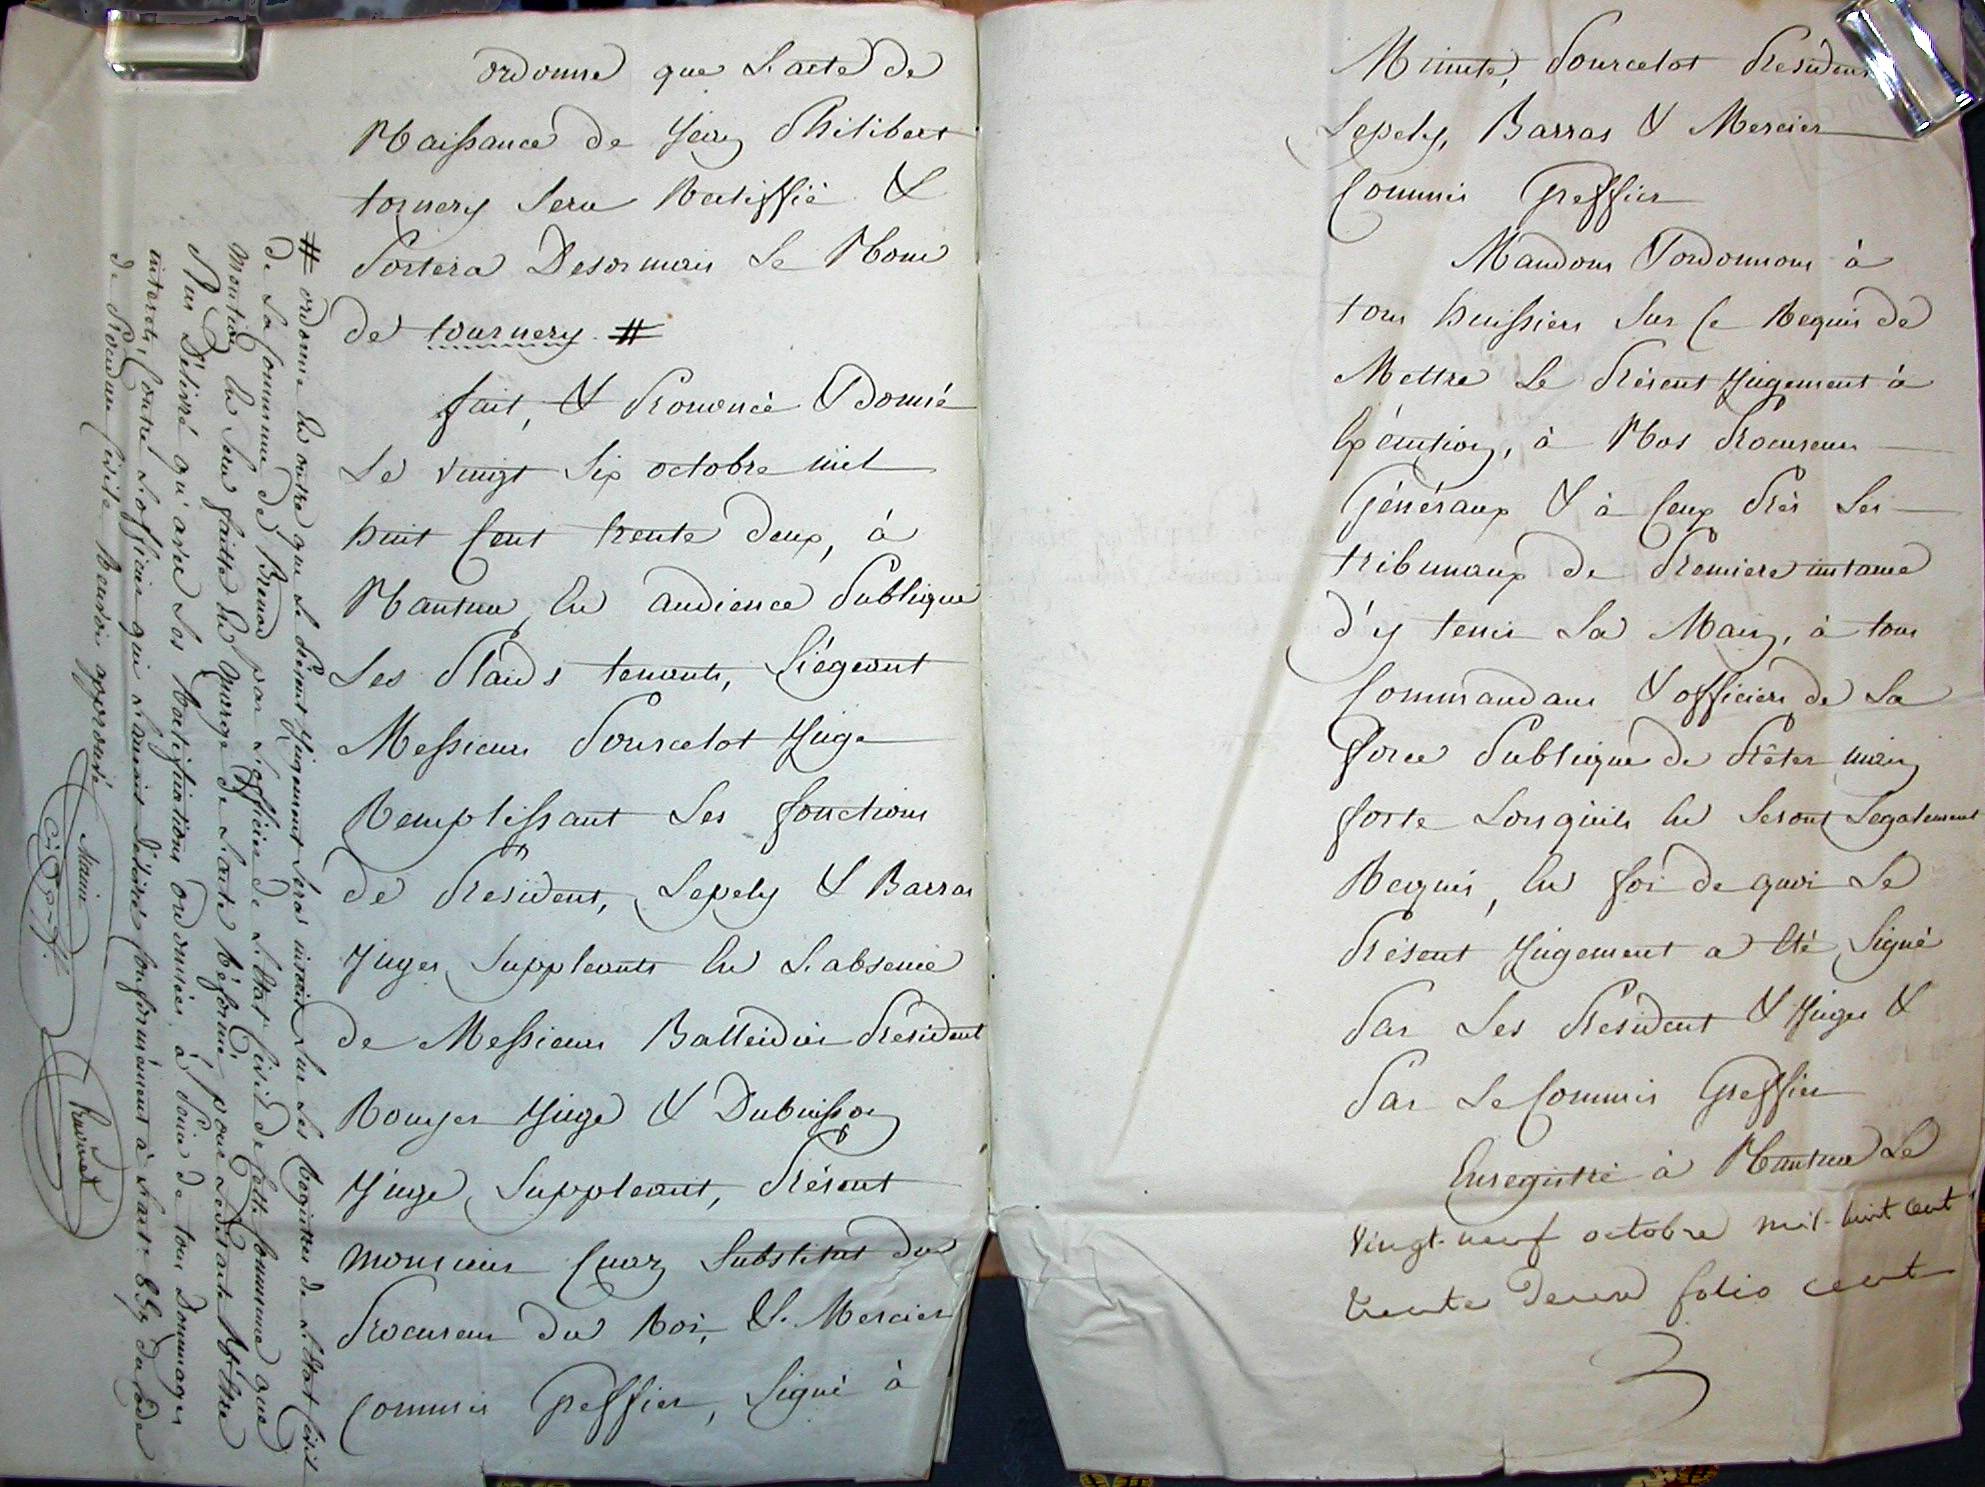 ordonne que L'acte de
Naissance de Jean Philibert
tornery Sera Rectiffié &
Portera Desormais Le Nom
de tournery. #
fait, & Prononcé & Donné
Le vingt Six octobre mil
huit Cent trente deux, à
Nantua, En audience Publique
Les Plaids tenants, Siégeant
Messieurs Pourcelot Juge
Remplissant Les fonctions
de Président, Lepely & Barras
Juges Suppleants En L'absence
de Messieurs Balleidier Président
Rouyer Juge & Dubuisson
Juge Suppleant, Présent
Monsieur Cuaz Substitut du
Procureur du Roi, & Mercier
Commis Greffier, Signé à
# ordonne En outre que Le présent Jugement Sera inscrit Sur Les Registres de L'Etat Civil
de La Commune de Brenod par L'officier de L'Etat Civil de Cette Commune que
Mention En Sera faitte En Marge de L'acte Réformé, pour Ledit acte N'être
Plus Délivré qu'avec Les Rectifications ordonnées, à Peine de tous Dommages
interets, Contre L'officier qui L'aurait Délivré Conformément à L'art. 857 du Code
de Procédure Civile. Renvoi approuvé
Minute, Pourcelot Président
Lepely, Barras & Mercier
Commis Greffier
Mandons & ordonnons à
tous huissiers Sur Ce Requis de
Mettre Le Présent Jugement à
Exécution, à Nos Procureurs
Généraux & à Ceux Près Les
tribunaux de Premiere instance
d'y tenir La Main, à tous
Commandans & officiers de La
force Publique de Prêter main
forte Lorsquils En Seront Legalement
Requis, En foi de quoi Le
Présent Jugement a Eté Signé
Par Les Président & Juges &
Par Le Commis Greffier
Enregistré à Nantua Le
vingt-neuf octobre mil-huit cent
trente deux folio cent